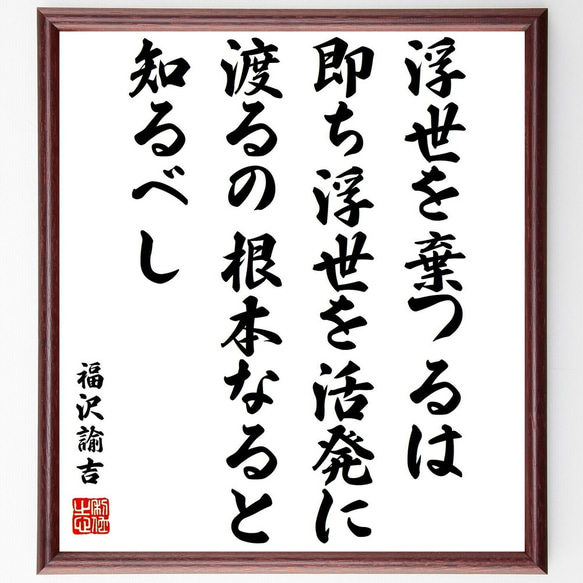 浮世を棄つるは
即ち浮世を活発に
渡るの根本なると
知るべし
福沢諭吉